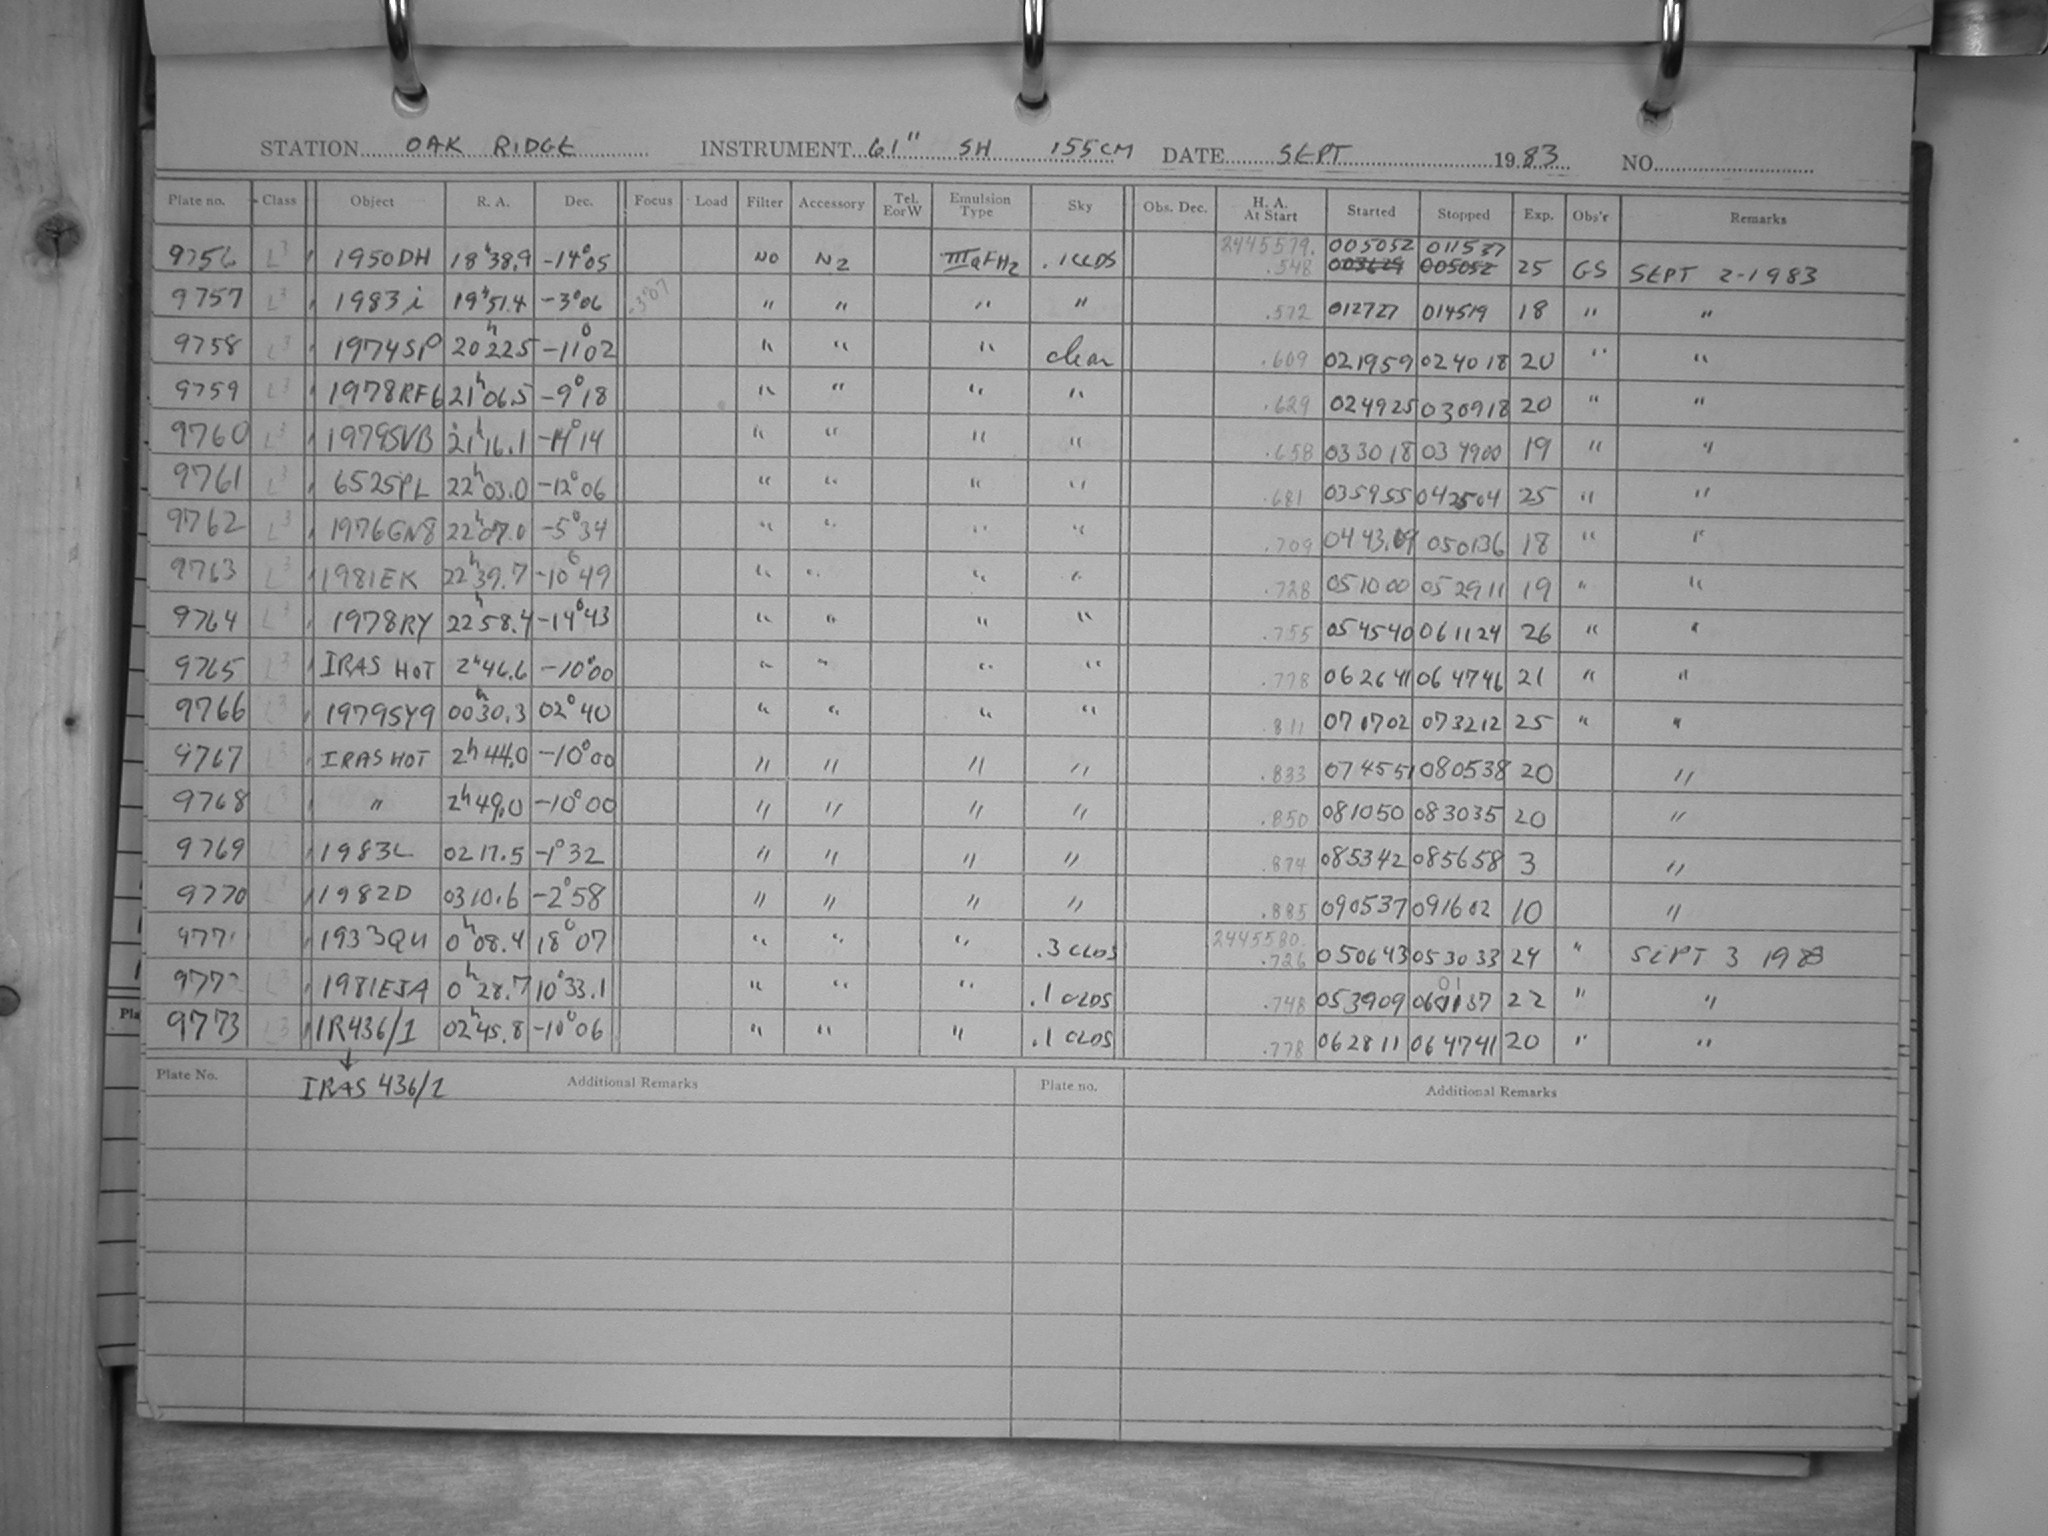 STATION OAK RIDGE INSTRUMENT 61" SH 155CM DATE SEPT 1983 NO.
Plate no. Class Object R. A. Dec. Focus Load Filter Accessory Tel. E or W Emulsion Type Sky Obs. Dec. H. A. At Start Started Stopped Exp. Obs'r Remarks
2445579. 005052 011537
9756 L3 1950DH 18h38.9 -14°05 NO N2 IIIaFH2 .1CLDS .548 003629 005052 25 GS SEPT 2-1983
9757 L3 1983i 19h51.4 -3°06 .387 " " " " .572 012727 014519 18 " "
9758 L3 1974SP 20h22.5 -11°02 " " " clear .609 021959 024018 20 " "
9759 L3 1978RF6 21h06.5 -9°18 " " " " .629 024925 030918 20 " "
9760 L3 1979SVB 21h16.1 -14°14 " " " " .658 033018 034900 19 " "
9761 L3 6525PL 22h03.0 -12°06 " " " " .681 035955 042504 25 " "
9762 L3 1976GN8 22h07.0 -5°34 " " " " .709 0443.09 050136 18 " "
9763 L3 1981EK 22h39.7 -10°49 " " " " .728 051000 052911 19 " "
9764 L3 1978RY 22h58.4 -14°43 " " " " .755 054540 061124 26 " "
9765 L3 IRAS HOT 2h46.6 -10°00 " " " " .778 062641 064746 21 " "
9766 L3 1979SY9 00h30.3 02°40 " " " " .811 071702 073212 25 " "
9767 L3 IRAS HOT 2h44.0 -10°00 " " " " .833 074551 080538 20 "
9768 L3 " 2h49.0 -10°00 " " " " .850 081050 083035 20 "
9769 L3 1983L 0217.5 -1°32 " " " " .874 085342 085658 3 "
9770 L3 1982D 0310.6 -2°58 " " " " .885 090537 091602 10 "
2445580.
977 1933QU 0h08.4 18°07 " " " .3 CLDS .726 050643 053033 24 " SEPT 3 1983
977 1981EJA 0h28.7 10°33.1 " " " .1 CLDS .748 053909 22 " "
9773 L3 IR436/1 02h45.8 -10°06 " " " .1 CLDS .778 062811 064741 20 " "
Plate No. IRAS 436/1 Additional Remarks Plate no. Additional Remarks
Pla